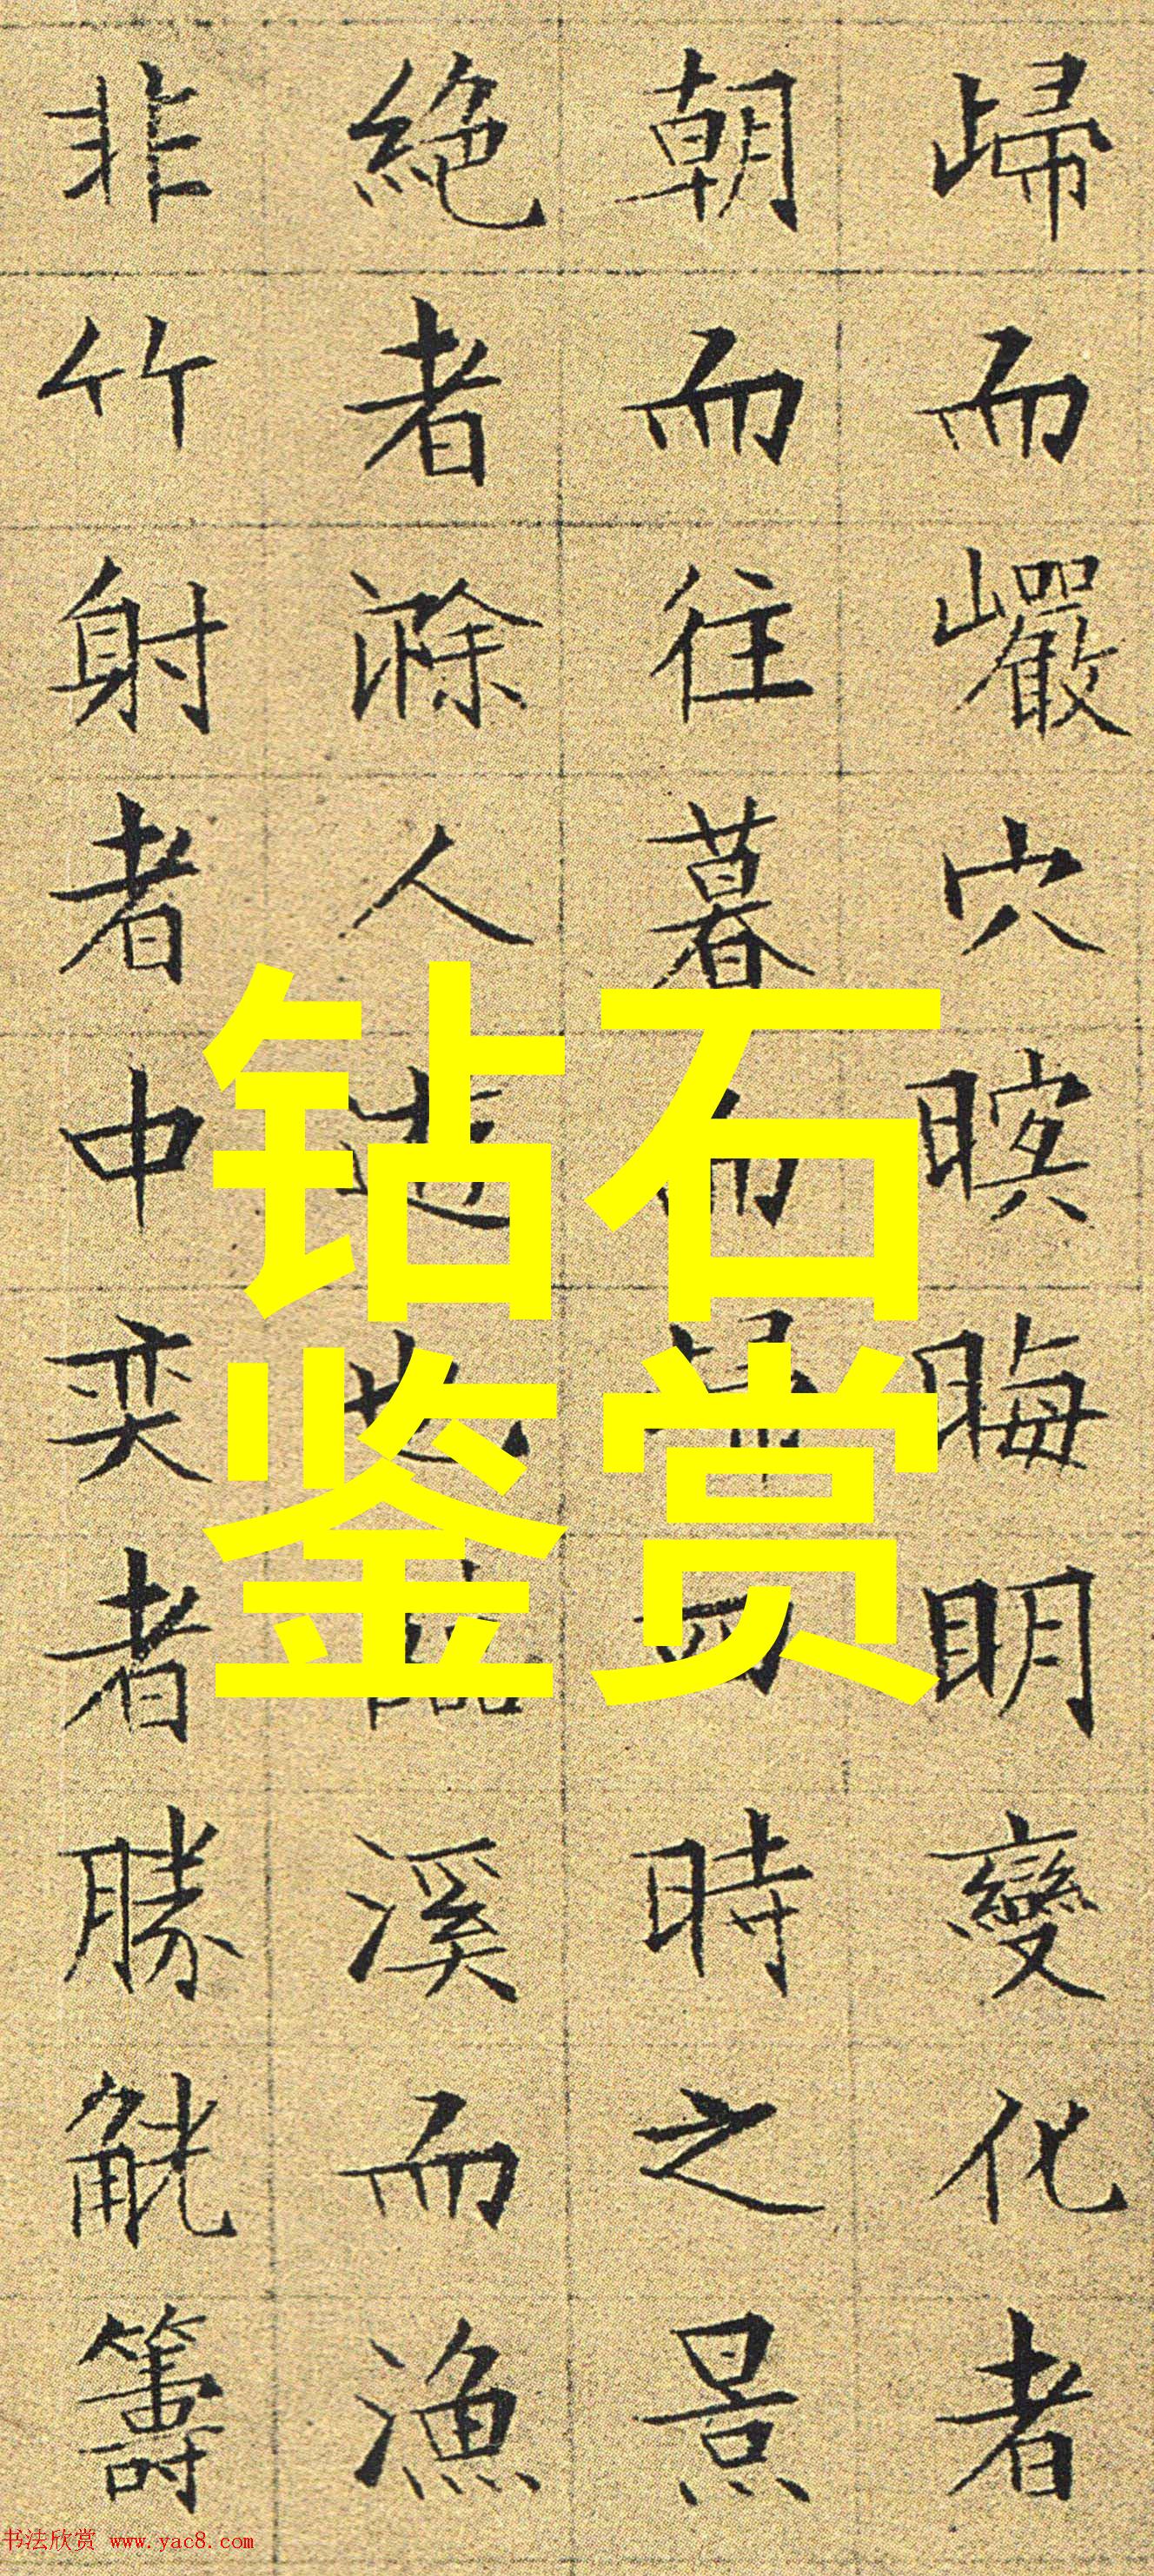 歸而巖穴暝晦明變化者
朝而往暮而歸四時之景
絕者滁人遊也臨溪而漁
非竹射者中奕者勝觥籌
钻石
鉴赏
书法欣赏 www.yac8.com